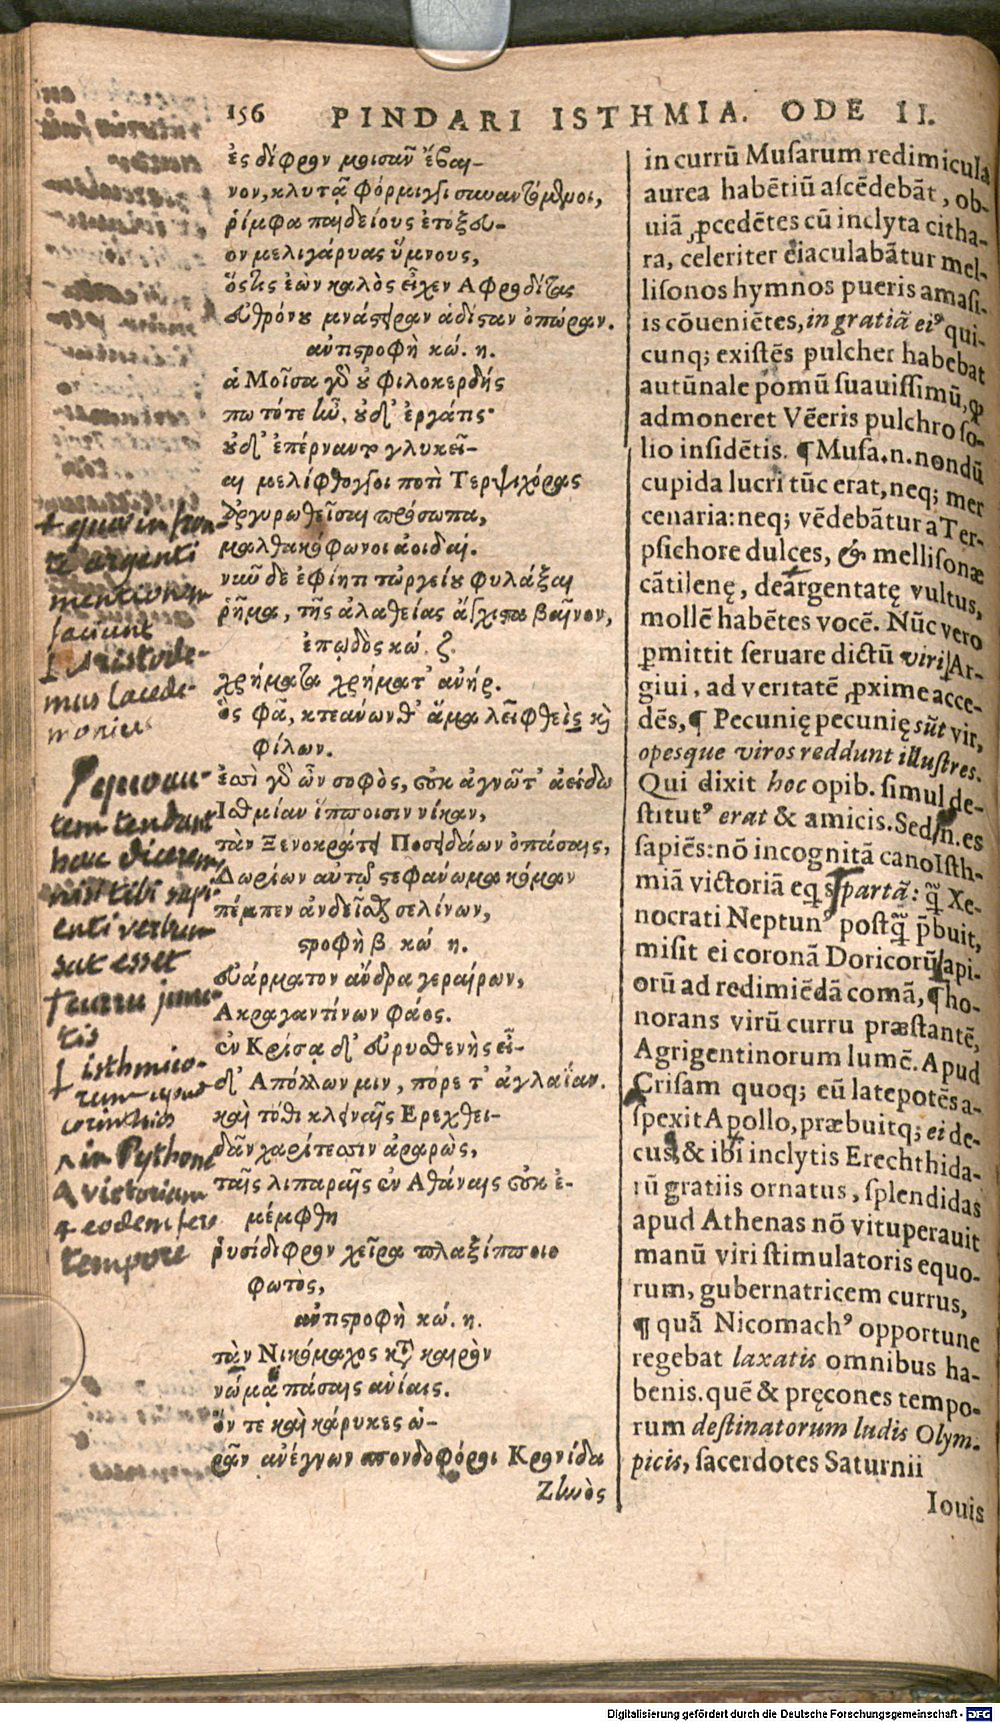 156 PINDARI ISTHMIA. ODE II.
ἐς δίφρον μοισᾶν ἔβαι-
νον, κλυτᾷ φόρμιγγι συναντόμενοι,
ῥίμφα παιδείους ἐτόξευ-
ον μελιγάρυας ὕμνους,
ὅστις ἐὼν καλὸς εἶχεν Αφροδίτας
εὐθρόνου μνάστειραν ἁδίσταν ὀπώραν.
ἀντιστροφὴ κώ. η.
ἁ Μοῖσα γὰρ οὐ φιλοκερδής
πω τότε ἦν, οὐδ' ἐργάτις·
οὐδ' ἐπέρναντο γλυκεῖ-
αι μελίφθογγοι ποτὶ Τερψιχόρας
ἀργυρωθεῖσαι πρόσωπα,
μαλθακόφωνοι ἀοιδαί.
νῦν δε ἐφίητι τὠργείου φυλάξαι
ῥῆμα, τῆς ἀλαθείας ἄγχιστα βαῖνον,
ἐπῳδὸς κώ. ζ.
χρήματα χρήματ' ἀνήρ.
ὃς φᾶ, κτεάνων θ' ἅμα λειφθεὶς καὶ
φίλων.
ἐσσὶ γὰρ ὦν σοφὸς, οὐκ ἀγνῶτ' ἀείδω
Ισθμίαν ἵπποισιν νίκαν,
τὰν Ξενοκράτει Ποσειδάων ὀπάσαις,
Δωρίων αὐτῷ στεφάνωμα κόμαν
πέμπεν ἀνδεῖσθαι σελίνων,
στροφὴ β κώ. η.
εὐάρματον ἄνδρα γεραίρων,
Ακραγαντίνων φάος.
ἐν Κρίσᾳ δ' εὐρυσθενὴς εἶ-
δ' Απόλλων μιν, πόρε τ' ἀγλαΐαν.
καὶ τόθι κλειναῖς Ερεχθει-
δᾶν χαρίτεσσιν ἀραρὼς,
ταῖς λιπαραῖς ἐν Αθάναις οὐκ ἐ-
μέμφθη
ῥυσίδιφρον χεῖρα πλαξίπποιο
φωτὸς,
ἀντιστροφὴ κώ. η.
τὰν Νικόμαχος κατὰ καιρὸν
νῶμᾳ πάσαις ἁνίαις.
ὅν τε καὶ κάρυκες ὡ-
ρᾶν ἀνέγνων σπονδοφόροι Κρονίδα
Ζηνὸς
in currū Musarum redimicula
aurea habētiū ascēdebāt, ob-
uiā ꝓcedētes cū inclyta citha-
ra, celeriter eiaculabātur mel-
lisonos hymnos pueris amasi-
is cōueniētes, in gratiā ei⁹ qui-
cunq; existēs pulcher habebat
autūnale pomū suauissimū, ꝙ
admoneret Vēeris pulchro so-
lio insidētis. ¶ Musa.n.nondū
cupida lucri tūc erat, neq; mer
cenaria: neq; vēdebātur a Ter-
psichore dulces, & mellisonæ
cātilenę, deargentatę vultus,
mollē habētes vocē. Nūc vero
ꝑmittit seruare dictū viri Ar-
giui, ad veritatē ꝓxime acce-
dēs, ¶ Pecunię pecunię sūt vir,
opesque viros reddunt illustres.
Qui dixit hoc opib. simul de-
stitut⁹ erat & amicis. Sed .n. es
sapiēs: nō incognitā cano Isth-
miā victoriā eq s partā: q̃ Xe-
nocrati Neptun⁹ postq̃ p̄buit,
misit ei coronā Doricorū api-
orū ad redimiēdā comā, ¶ ho-
norans virū curru præstantē,
Agrigentinorum lumē. Apud
Crisam quoq; eū latepotēs a-
spexit Apollo, præbuitq; ei de-
cus, & ibi inclytis Erechthida-
rū gratiis ornatus, splendidas
apud Athenas nō vituperauit
manū viri stimulatoris equo-
rum, gubernatricem currus,
¶ quā Nicomach⁹ opportune
regebat laxatis omnibus ha-
benis. quē & pręcones tempo-
rum destinatorum ludis Olym-
picis, sacerdotes Saturnii
Iouis
+ quasi in fron
te argenti
mentionem
faciunt
Aristode-
mus lacede-
monius
tem tendunt
hac dicerem
nisi tibi sapi-
enti verbum
sat esset
+ curru junc-
tis
isthmico-
rum
corinthios
in Pythone
victoriam
eodem fere
tempore
Digitalisierung gefördert durch die Deutsche Forschungsgemeinschaft - DFG